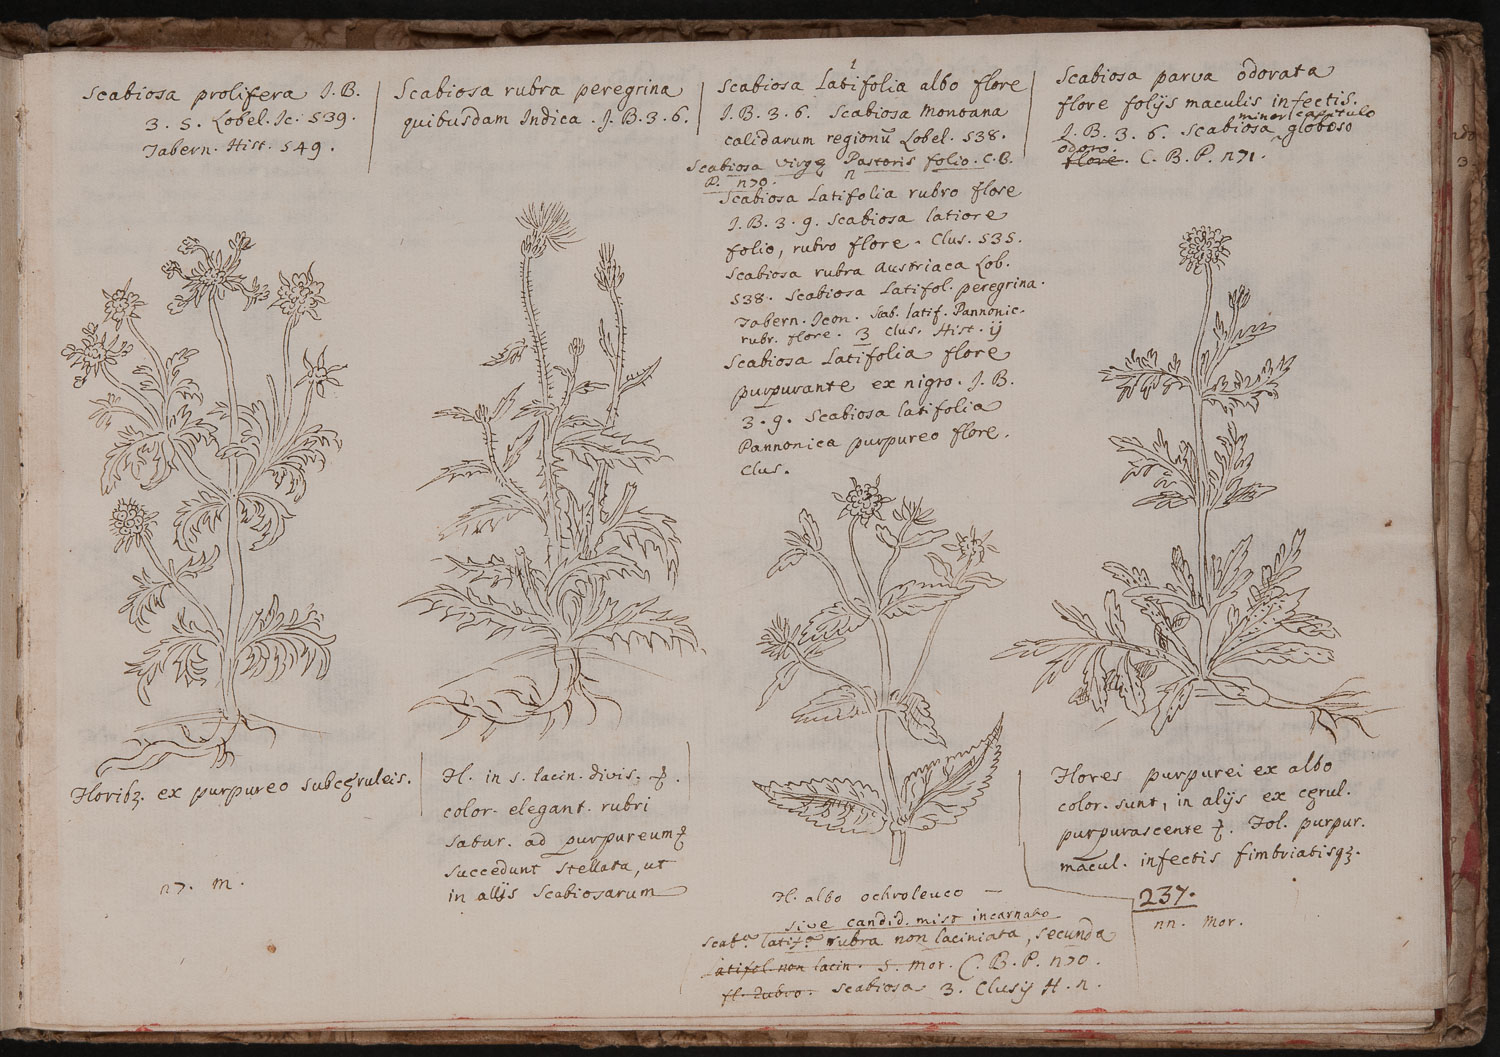 Scabiosa prolifera J.B.
3. 5. Lobel. Ic. 539.
Tabern. Hist. 549.
Scabiosa rubra peregrina
quibusdam Indica. J.B. 3. 6.
Scabiosa Latifolia albo flore
J.B. 3. 6. Scabiosa Montana
calidarum regionū Lobel. 538.
Scabiosa virgę Pastoris folio. C.B.
P. n70.
Scabiosa Latifolia rubro flore
J.B. 3. 9. Scabiosa latiore
folio, rubro flore. Clus. 535.
Scabiosa rubra Austriaca Lob.
538. Scabiosa Latifol. peregrina.
Tabern. Icon. Scab. latif. Pannonic.
rubr. flore. 3 Clus. Hist. ij
Scabiosa Latifolia flore
purpurante ex nigro. J.B.
3. 9. Scabiosa latifolia
Pannonica purpureo flore.
Clus.
Scabiosa parva odorata
flore folijs maculis infectis.
minor capitulo
J.B. 3. 6. Scabiosa globoso
odoro.
flore. C.B.P. n71.
Floribꝫ. ex purpureo subcęruleis.
n7. m.
Fl. in 5. lacin. divis.
color. elegant. rubri
satur. ad purpureum
succedunt stellata, ut
in alijs Scabiosarum
Fl. albo ochroleuco —
sive candid. mist incarnato
Scab.ª latif.ª rubra non laciniata, secunda
latifol. non lacin. 5. Mor. C.B.P. n70.
fl. Rubro. Scabiosa 3. Clusij H. n.
Flores purpurei ex albo
color. sunt, in alijs ex cęrul.
purpurascente. Fol. purpur.
macul. infectis fimbriatisqꝫ.
237.
nn. Mor.